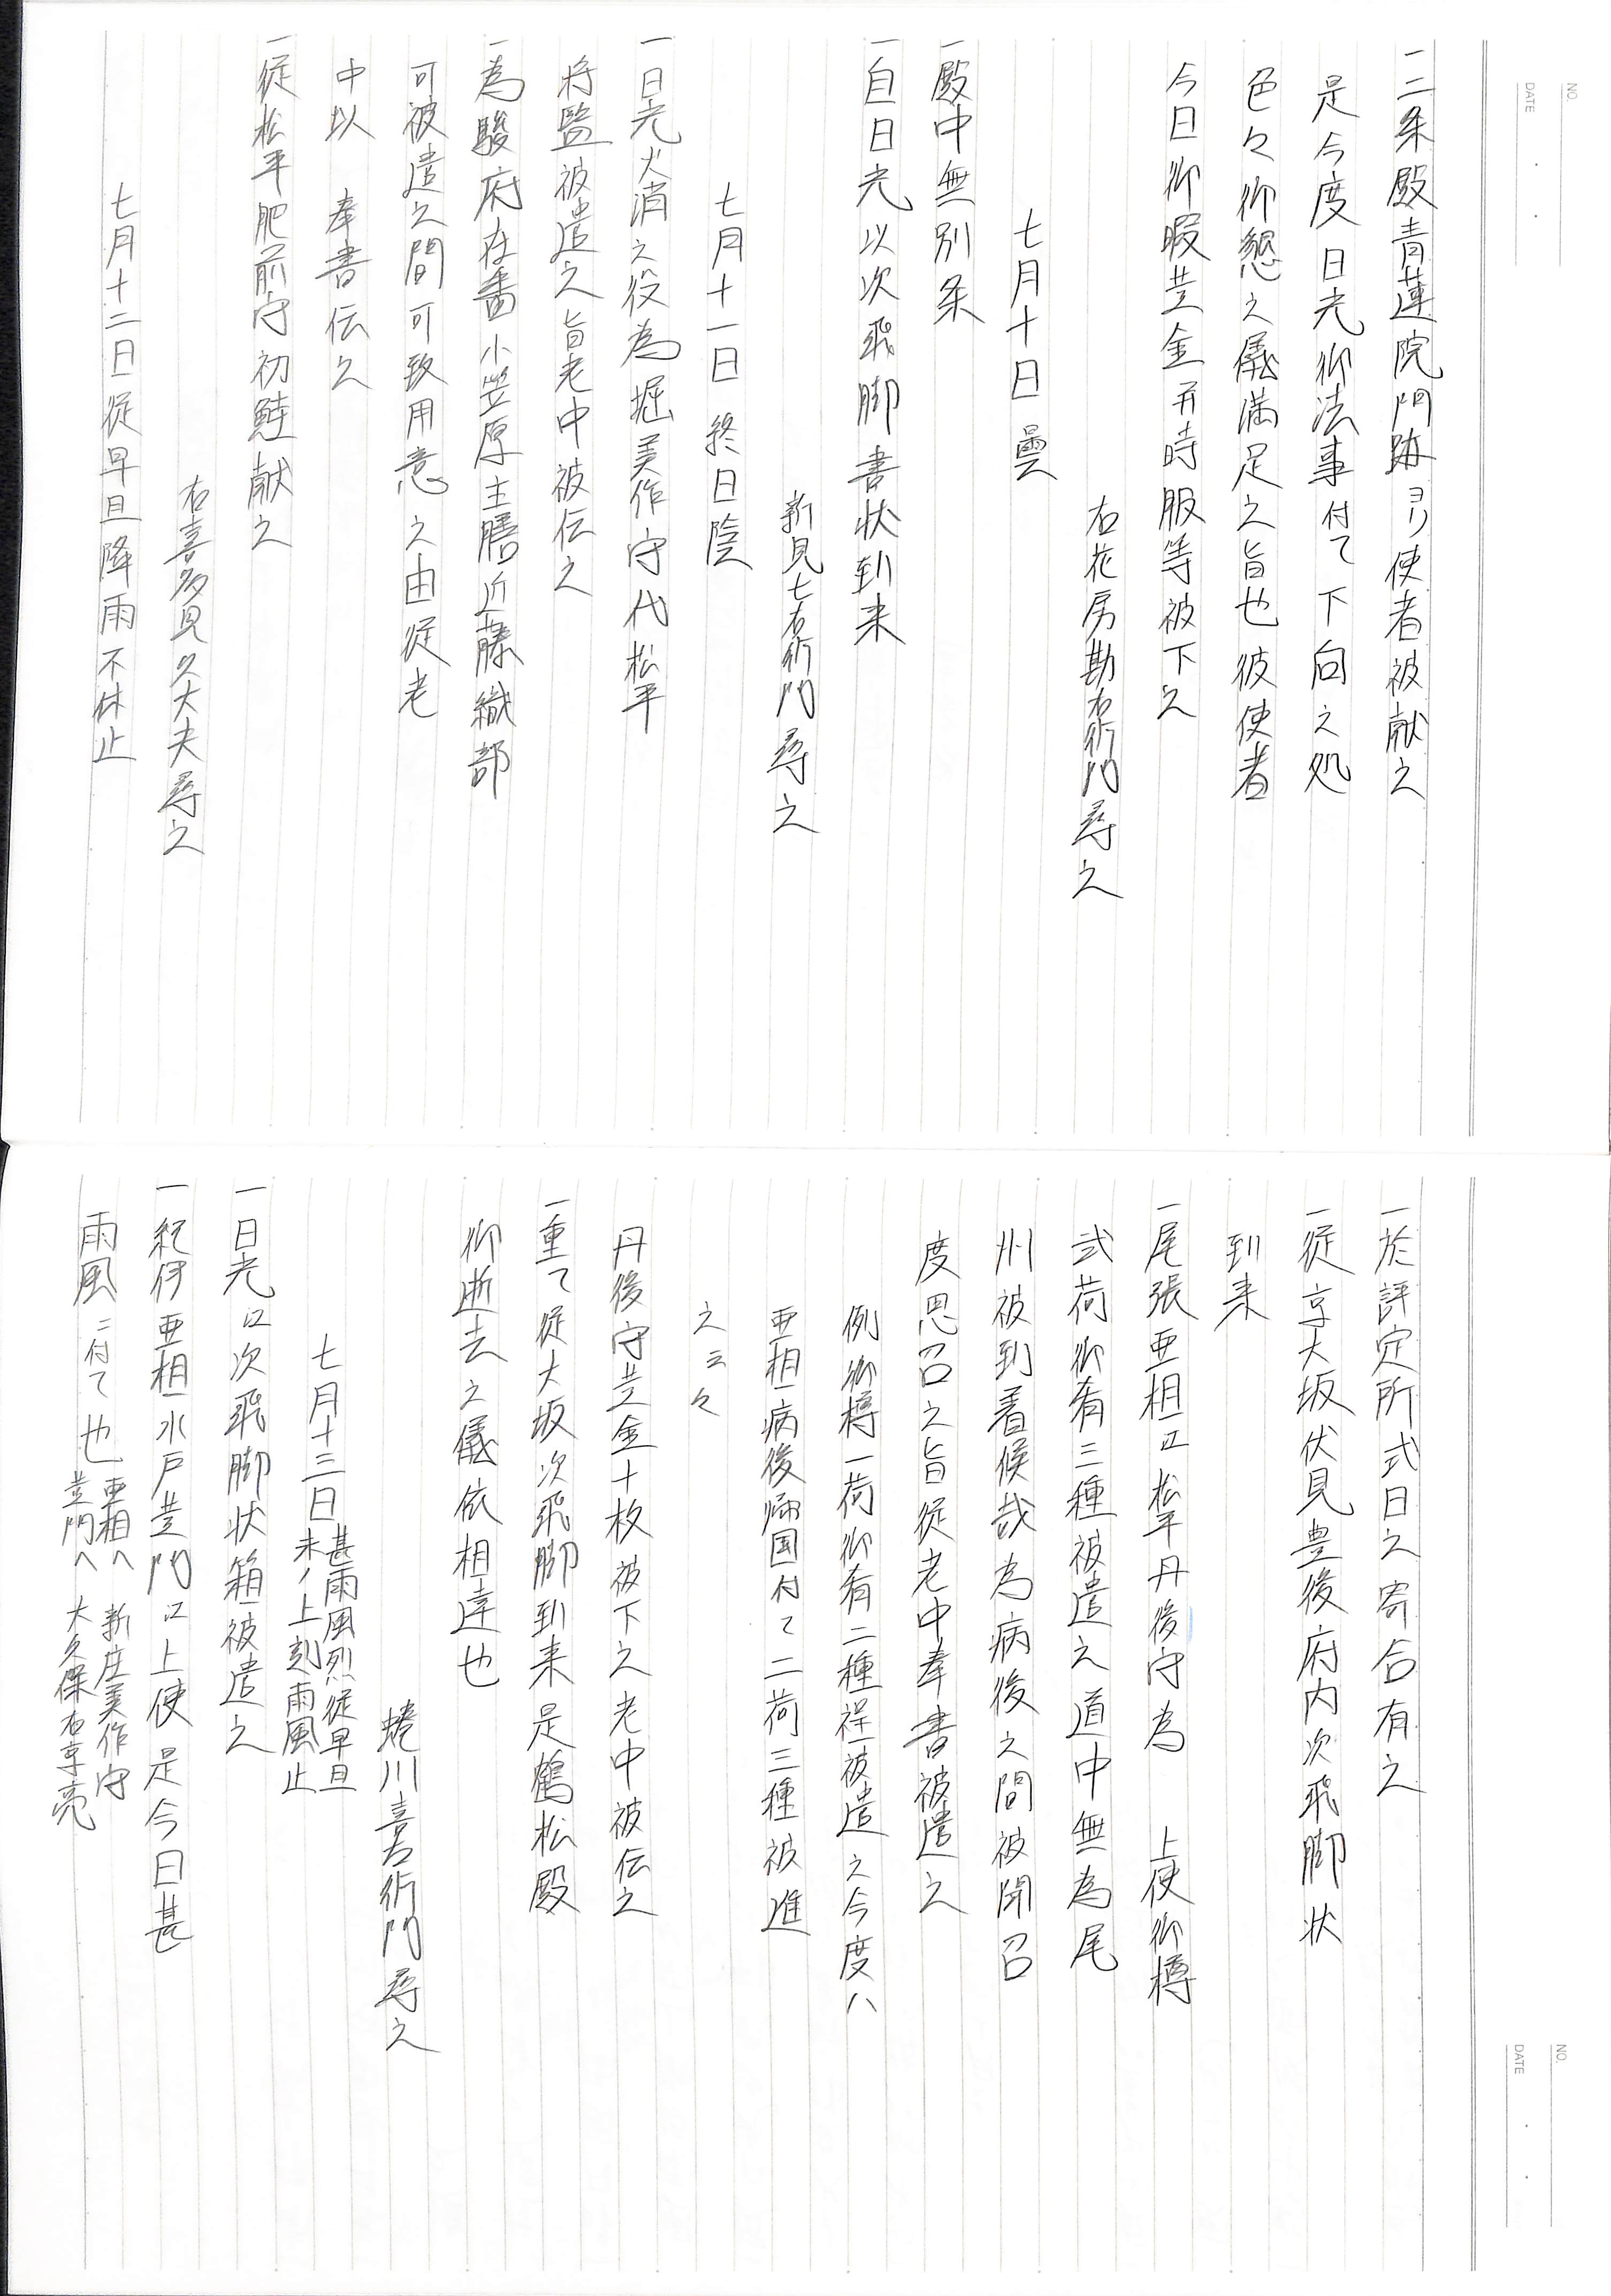 一二条殿青蓮院門跡ヨリ使者被献之
是今度日光御法事付て下向之処
色々御懇之儀満足之旨也彼使者
今日御暇黄金并時服等被下之
右花房勘右衛門尋之
七月十日 曇
一殿中無別条
一自日光以次飛脚書状到来
新見七右衛門尋之
七月十一日 終日陰
一日光火消之役為堀美作守代松平
将監被遣之旨老中被伝之
一為駿府在番小笠原主膳近藤織部
可被遣之間可致用意之由従老
中以 奉書伝之
一従松平肥前守初鮭献之
右喜多見久大夫尋之
七月十二日 従早旦降雨不休止
一於評定所式日之寄合有之
一従京大坂伏見豊後府内次飛脚状
到来
一尾張亜相江松平丹後守為 上使御樽
弐荷御肴三種被遣之道中無為尾
州被到着候哉為病後之間被聞召
度思召之旨従老中奉書被遣之
例御樽一荷御肴二種程被遣之今度ハ
亜相病後帰国付て二荷三種被進
之云々
丹後守黄金十枚被下之老中被伝之
一重て従大坂次飛脚到来是鶴松殿
御逝去之儀依相達也
蜷川喜左衛門尋之
七月十三日 甚雨風烈従早旦
未ノ上刻雨風止
一日光江次飛脚状箱被遣之
一紀伊亜相水戸黄門江上使是今日甚
雨風ニ付て也 亜相へ 新庄美作守
黄門へ 大久保右京亮
NO.
DATE
NO.
DATE